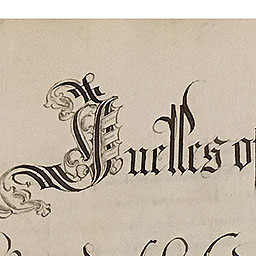 Juelles of